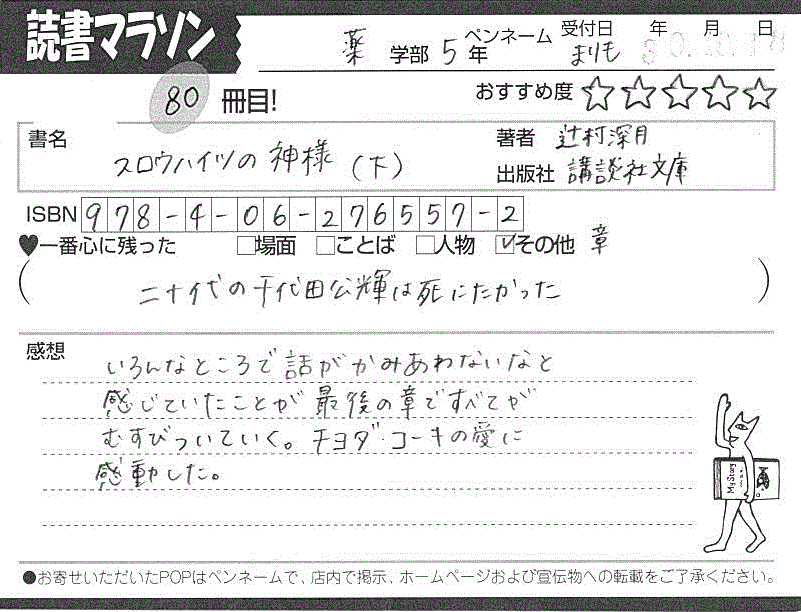 読書マラソン
薬 学部 5 年 ペンネーム まりも 受付日 年 月 日
80 冊目! おすすめ度 ☆☆☆☆☆
書名 スロウハイツの神様(下)
著者 辻村深月
出版社 講談社文庫
ISBN 978-4-06-276557-2
♥一番心に残った □場面 □ことば □人物 ☑その他 章
(二十代の千代田公輝は死にたかった)
感想
いろんなところで話がかみあわないなと
感じていたことが最後の章ですべてが
むすびついていく。チヨダ・コーキの愛に
感動した。
●お寄せいただいたPOPはペンネームで、店内で掲示、ホームページおよび宣伝物への転載をご了承ください。